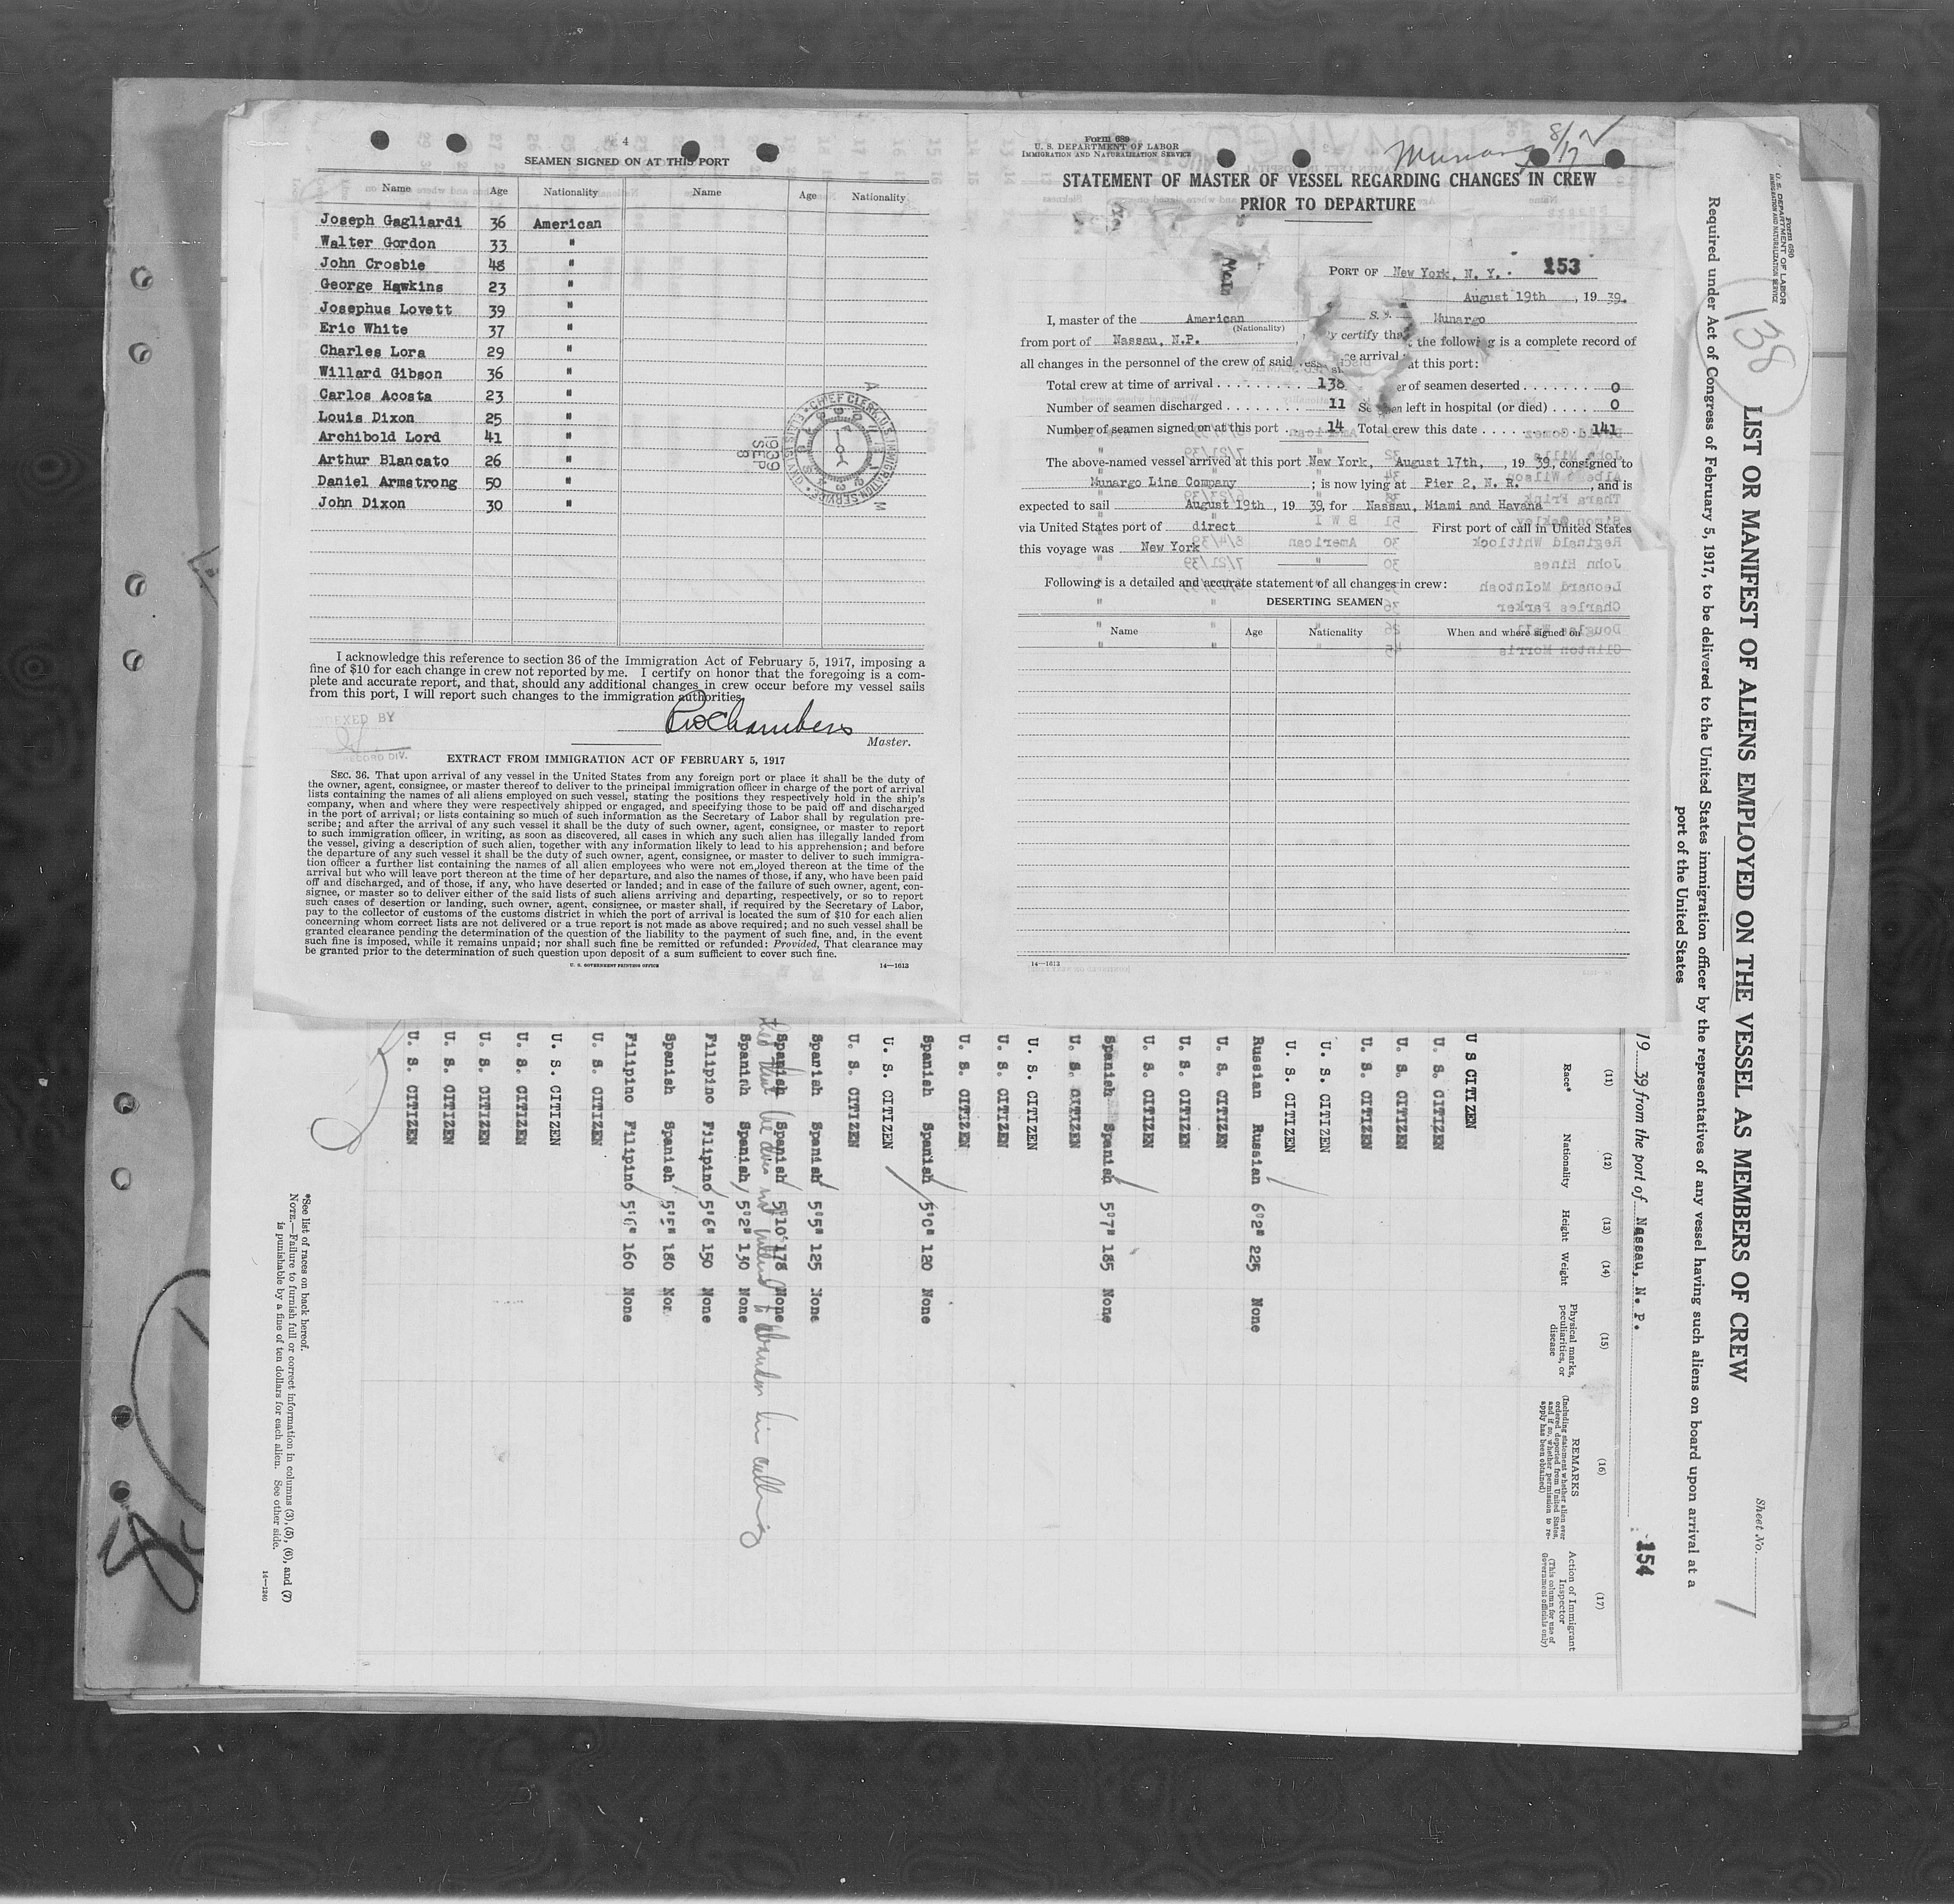 4
SEAMEN SIGNED ON AT THIS PORT
Name Age Nationality Name Age Nationality
Joseph Gagliardi 36 American
Walter Gordon 33 "
John Crosbie 48 "
George Hawkins 23 "
Josephus Lovett 39 "
Eric White 37 "
Charles Lora 29 "
Willard Gibson 36 "
Carlos Acosta 23 "
Louis Dixon 25 "
Archibold Lord 41 "
Arthur Blancato 26 "
Daniel Armstrong 50 "
John Dixon 30 "
1939 SEP 8
I acknowledge this reference to section 36 of the Immigration Act of February 5, 1917, imposing a
fine of $10 for each change in crew not reported by me. I certify on honor that the foregoing is a com-
plete and accurate report, and that, should any additional changes in crew occur before my vessel sails
from this port, I will report such changes to the immigration authorities.
INDEXED BY
RECORD DIV.
Chambers
Master.
EXTRACT FROM IMMIGRATION ACT OF FEBRUARY 5, 1917
SEC. 36. That upon arrival of any vessel in the United States from any foreign port or place it shall be the duty of
the owner, agent, consignee, or master thereof to deliver to the principal immigration officer in charge of the port of arrival
lists containing the names of all aliens employed on such vessel, stating the positions they respectively hold in the ship's
company, when and where they were respectively shipped or engaged, and specifying those to be paid off and discharged
in the port of arrival; or lists containing so much of such information as the Secretary of Labor shall by regulation pre-
scribe; and after the arrival of any such vessel it shall be the duty of such owner, agent, consignee, or master to report
to such immigration officer, in writing, as soon as discovered, all cases in which any such alien has illegally landed from
the vessel, giving a description of such alien, together with any information likely to lead to his apprehension; and before
the departure of any such vessel it shall be the duty of such owner, agent, consignee, or master to deliver to such immigra-
tion officer a further list containing the names of all alien employees who were not em,loyed thereon at the time of the
arrival but who will leave port thereon at the time of her departure, and also the names of those, if any, who have been paid
off and discharged, and of those, if any, who have deserted or landed; and in case of the failure of such owner, agent, con-
signee, or master so to deliver either of the said lists of such aliens arriving and departing, respectively, or so to report
such cases of desertion or landing, such owner, agent, consignee, or master shall, if required by the Secretary of Labor,
pay to the collector of customs of the customs district in which the port of arrival is located the sum of $10 for each alien
concerning whom correct lists are not delivered or a true report is not made as above required; and no such vessel shall be
granted clearance pending the determination of the question of the liability to the payment of such fine, and, in the event
such fine is imposed, while it remains unpaid; nor shall such fine be remitted or refunded: Provided, That clearance may
be granted prior to the determination of such question upon deposit of a sum sufficient to cover such fine.
U. S. GOVERNMENT PRINTING OFFICE 14—1613
Form 689
U. S. DEPARTMENT OF LABOR
IMMIGRATION AND NATURALIZATION SERVICE
Munargo 8/17
STATEMENT OF MASTER OF VESSEL REGARDING CHANGES IN CREW
PRIOR TO DEPARTURE
PORT OF New York, N. Y. 153
August 19th, 19 39.
I, master of the American S. S. Munargo
(Nationality)
from port of Nassau, N.P., y certify tha the following is a complete record of
all changes in the personnel of the crew of said ce arrival at this port:
Total crew at time of arrival 138 er of seamen deserted 0
Number of seamen discharged 11 Seamen left in hospital (or died) 0
Number of seamen signed on at this port 14 Total crew this date 141
The above-named vessel arrived at this port New York, August 17th, , 19 39, consigned to
Munargo Line Company ; is now lying at Pier 2, N. R. , and is
expected to sail August 19th , 19 39, for Nassau, Miami and Havana
via United States port of direct First port of call in United States
this voyage was New York
Following is a detailed and accurate statement of all changes in crew:
DESERTING SEAMEN
Name Age Nationality When and where signed on
14—1613
Form 680
U. S. DEPARTMENT OF LABOR
IMMIGRATION AND NATURALIZATION SERVICE
138
LIST OR MANIFEST OF ALIENS EMPLOYED ON THE VESSEL AS MEMBERS OF CREW
Sheet No.
Required under Act of Congress of February 5, 1917, to be delivered to the United States immigration officer by the representatives of any vessel having such aliens on board upon arrival at a
port of the United States
19 39 from the port of Nassau, N. P. 154
(11) (12) (13) (14) (15) (16) (17)
Race* Nationality Height Weight
Physical marks, peculiarities, or disease
REMARKS
(Including statement whether alien ever ordered deported from United States, and if so, whether permission to re-apply has been obtained)
Action of Immigrant Inspector
(This column for use of Government officials only)
U S CITIZEN
U. S. CITIZEN
U. S. CITIZEN
U. S. CITIZEN
U. S. CITIZEN
U. S. CITIZEN
Russian Russian 6'2" 225 None
U. S. CITIZEN
U. S. CITIZEN
U. S. CITIZEN
Spanish Spanish 5'7" 185 None
U. S. CITIZEN
U. S. CITIZEN
U. S. CITIZEN
U. S. CITIZEN
Spanish Spanish 5'0" 120 None
U. S. CITIZEN
U. S. CITIZEN
Spanish Spanish 5'5" 125 None
Spanish Spanish 5'10" 178 None
that he does not intend to abandon his calling
Spanish Spanish 5'2" 130 None
Filipino Filipino 5'6" 150 None
Spanish Spanish 5'5" 180 Non
Filipino Filipino 5'6" 160 None
U. S. CITIZEN
U. S. CITIZEN
U. S. CITIZEN
U. S. CITIZEN
U. S. CITIZEN
U. S. CITIZEN
*See list of races on back hereof.
NOTE.—Failure to furnish full or correct information in columns (3), (5), (6), and (7)
is punishable by a fine of ten dollars for each alien. See other side.
14—1240